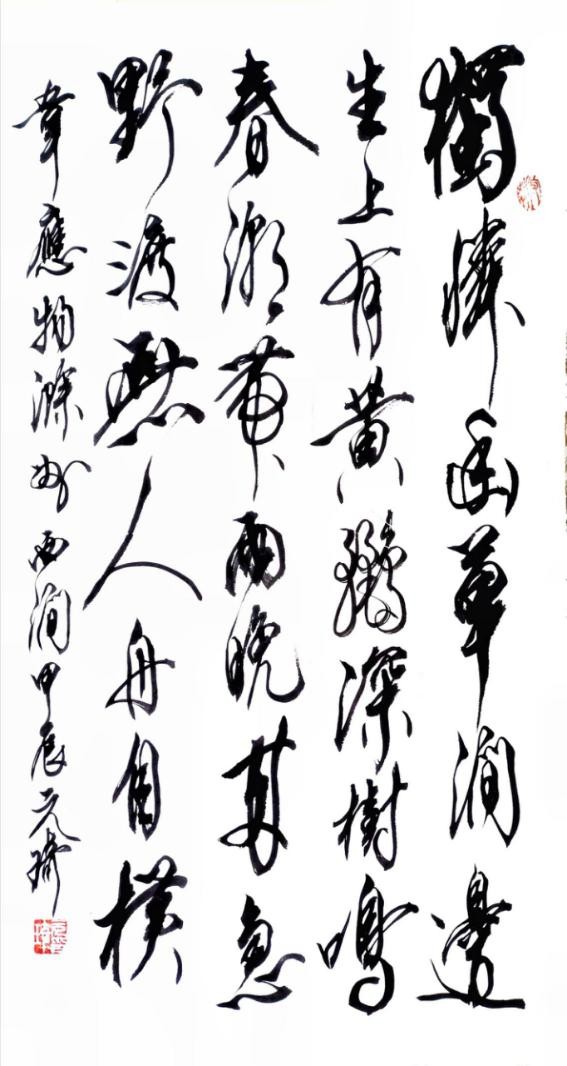 獨憐幽草澗邊
生上有黃鸝深樹鳴
春潮帶雨晚來急
野渡無人舟自橫
韋應物滁州西澗甲辰元琦